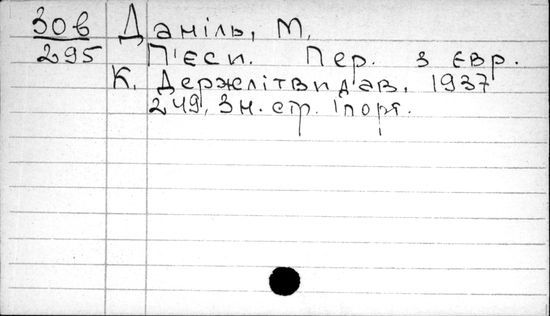 30 в Даніль, М.
295 П'єси. Пер. з євр.
К. Держлітвидав, 1937
249, 3 н. стр. 1 порт.